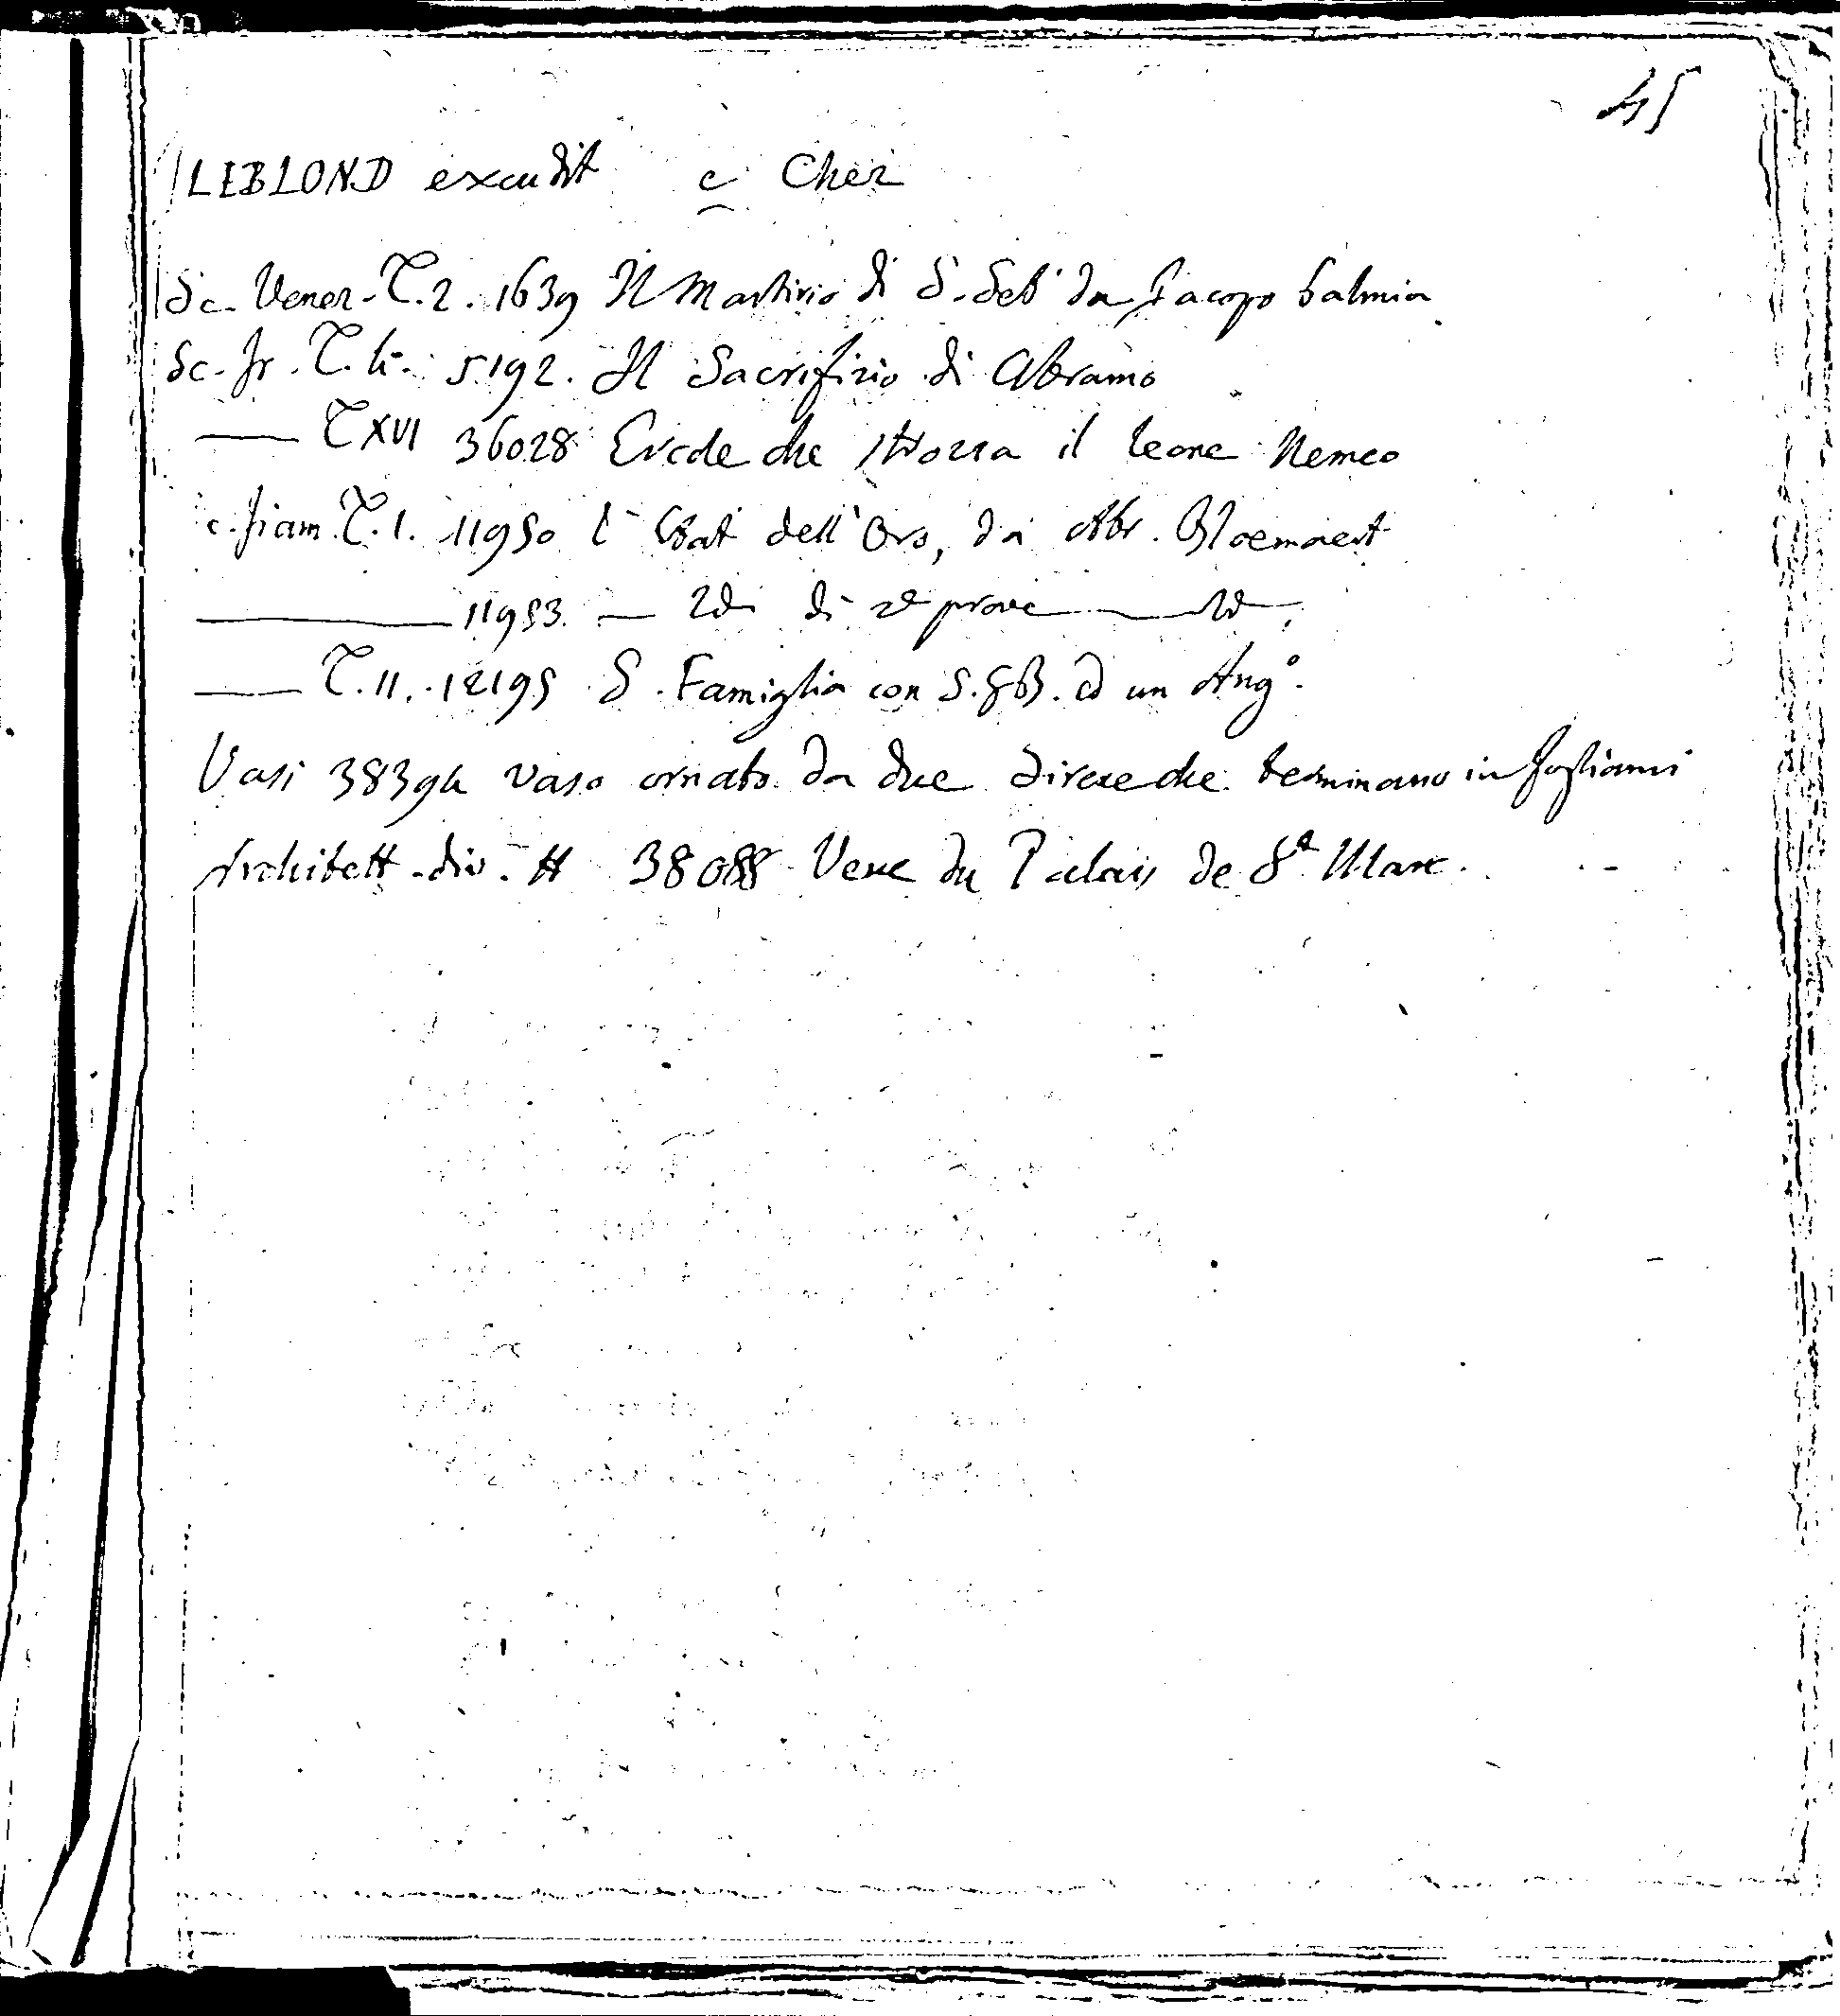 45
LEBLOND excudit e Chez
Sc. Vener. T. 2. 1639 Il Martirio di S. Seb. da Jacopo Palma
Sc. fr. T. 4. 5192. Il Sacrifizio di Abramo
— T XVI 36028 Ercole che strozza il leone Nemeo
c. fiam. T. 1. 11950 l' Età dell'Oro, da Abr. Bloemaert
— 11953. — Id. di 2e prove — Id.
— T. 11. 12195 S. Famiglia con S. GB. ed un Ang.º
Vasi 38394 vaso ornato da due Sirene che terminano in fogliami
Architett. div. H 38088 Veue du Palais de St. Marc.